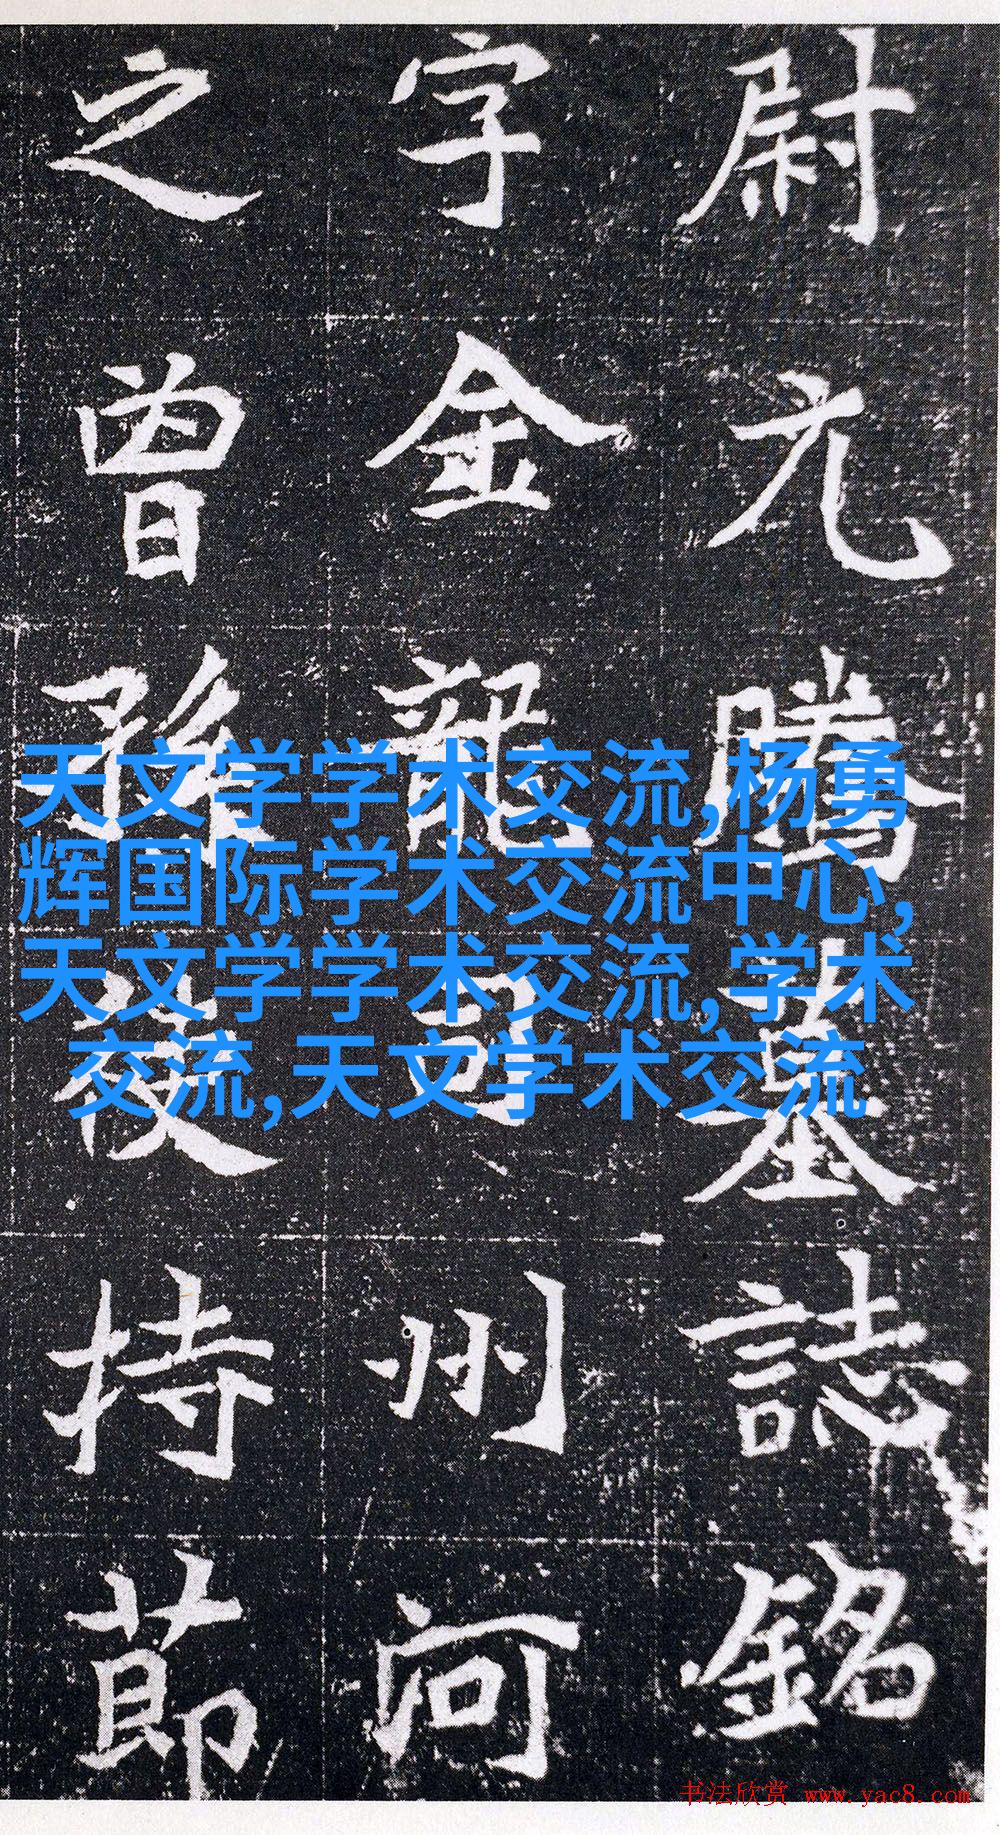 尉元騰墓誌銘
字金龍司州河
之曾孫使持節
天文学学术交流,杨勇
辉国际学术交流中心,
天文学学术交流,学术
交流,天文学术交流
书法欣赏 www.yac8.com